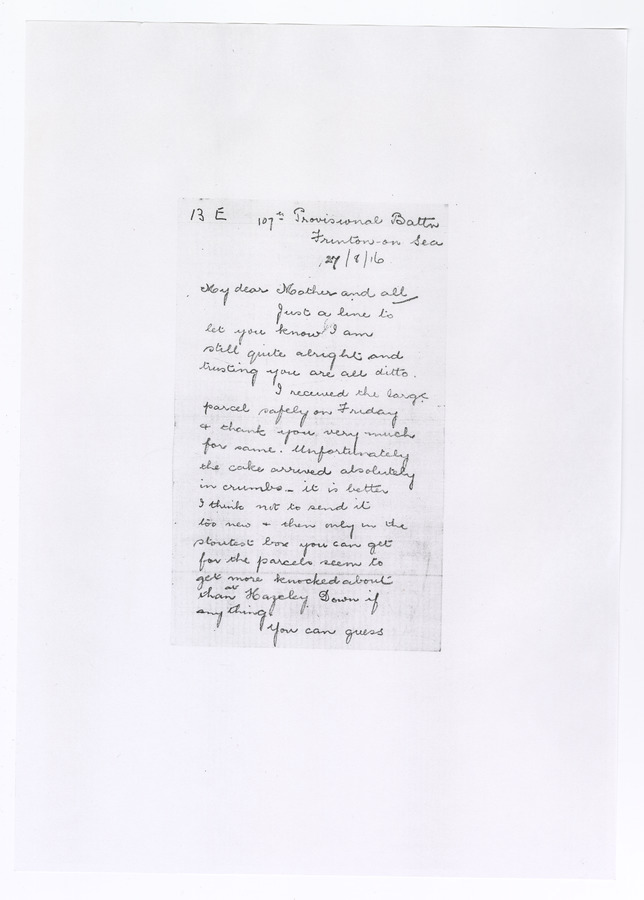 13 E 107th Provisional Battn
Frinton-on Sea
27/8/16
My dear Mother and all
Just a line to
let you know I am
still quite alright and
trusting you are all ditto.
I received the large
parcel safely on Friday
& thank you very much
for same. Unfortunately
the cake arrived absolutely
in crumbs – it is better
I think not to send it
too new & then only in the
stoutest box you can get
for the parcels seem to
get more knocked about
than at Hazeley Down if
anything.
You can guess